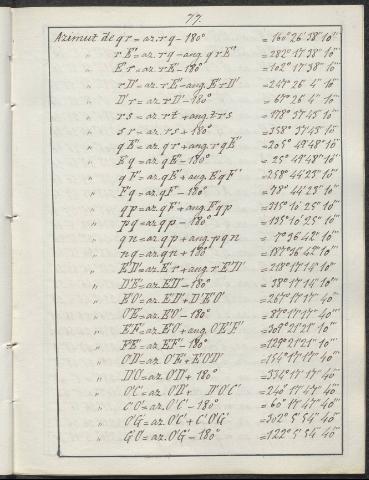 77.
Azimut de qr = az. rq - 180° = 160° 26' 38" 10'''
" rE' = az. rq - ang. qrE' = 282° 17' 38" 10'''
" E'r = az. rE' - 180° = 102° 17' 38" 10'''
" rD' = az. rE' - ang. E'rD' = 247° 26' 4" 10'''
" D'r = az. rD' - 180° = 67° 26' 4" 10'''
" rs = az. rt + ang. trs = 178° 37' 45" 10'''
" sr = az. rs + 180° = 358° 37' 45" 10'''
" qE' = az. qr + ang. rqE' = 205° 49' 48" 10'''
" E'q = az. qE' - 180° = 25° 49' 48" 10'''
" qF' = az. qE' + ang. E'qF' = 258° 44' 23" 10'''
" F'q = az. qF' - 180° = 78° 44' 23" 10'''
" qp = az. qF' + ang. F'qp = 315° 10' 25" 10'''
" pq = az. qp - 180° = 135° 10' 25" 10'''
" qn = az. qp + ang. pqn = 7° 36' 42" 10'''
" nq = az. qn + 180° = 187° 36' 42" 10'''
" E'D' = az. E'r + ang. rE'D' = 218° 17' 14" 10'''
" D'E' = az. E'D' - 180° = 38° 17' 14" 10'''
" E'O' = az. E'D' + D'E'O' = 267° 17' 17" 40'''
" O'E' = az. E'O' - 180° = 87° 17' 17" 40'''
" E'F' = az. E'O' + ang. O'E'F' = 309° 21' 21" 10'''
" F'E' = az. E'F' - 180° = 129° 21' 21" 10'''
" O'D' = az. O'E' + E'O'D' = 154° 17' 17" 40'''
" D'O' = az. O'D' + 180° = 334° 17' 17" 40'''
" O'C' = az. O'D' + D'O'C' = 240° 17' 47" 40'''
" C'O' = az. O'C' - 180° = 60° 17' 47" 40'''
" O'G' = az. O'C' + C'O'G' = 302° 5' 54" 40'''
" G'O' = az. O'G' - 180° = 122° 5' 54" 40'''